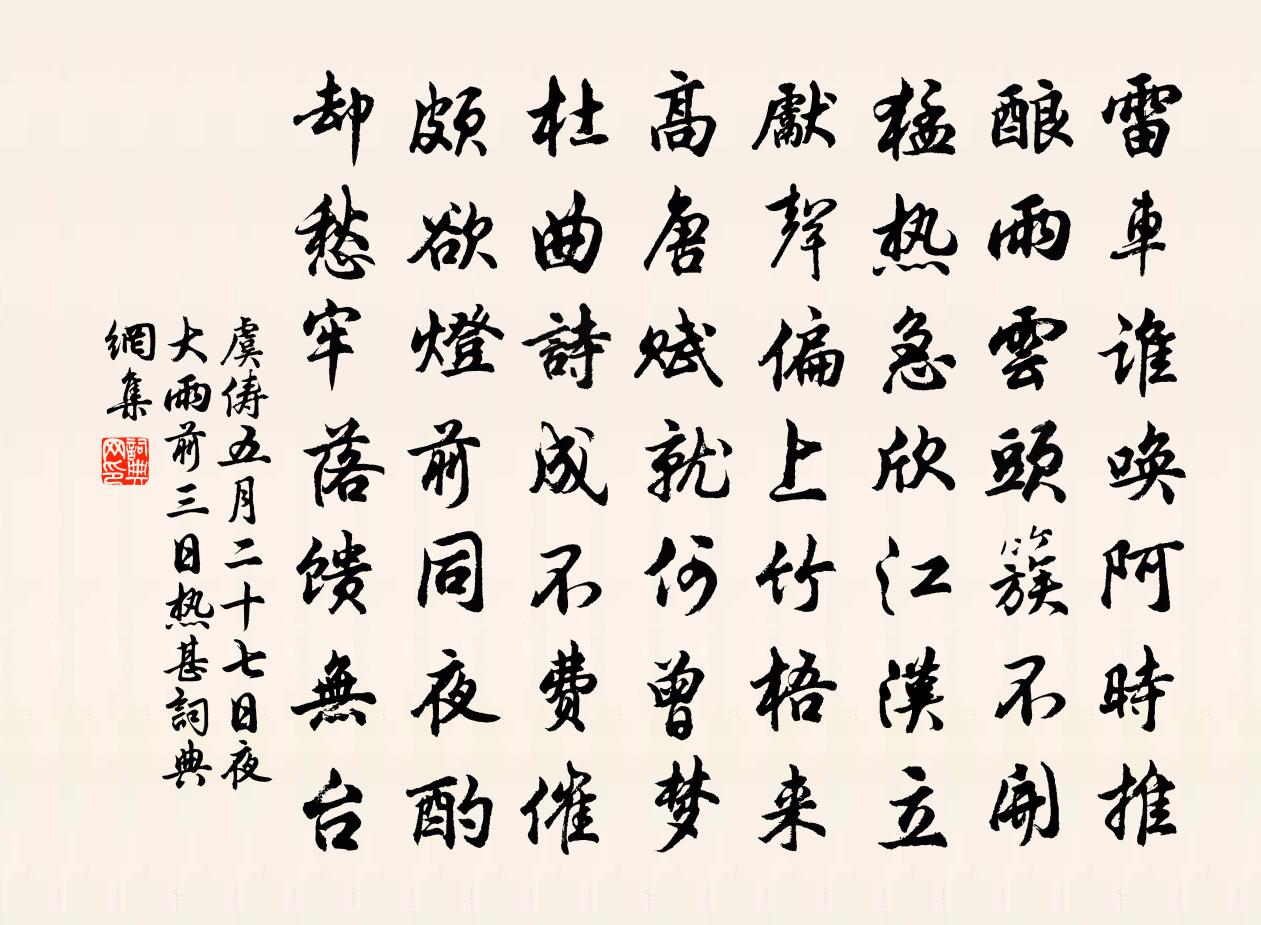 雷車誰唤阿時推
酿雨雲頭簇不開
猛热急欣江漢立
獻聲偏上竹梧来
高唐赋就何曾梦
杜曲詩成不费催
頗欲燈前同夜酌
却愁牢落馈無台
虞儔五月二十七日夜
大雨前三日热甚詞典
網集
詞典网印